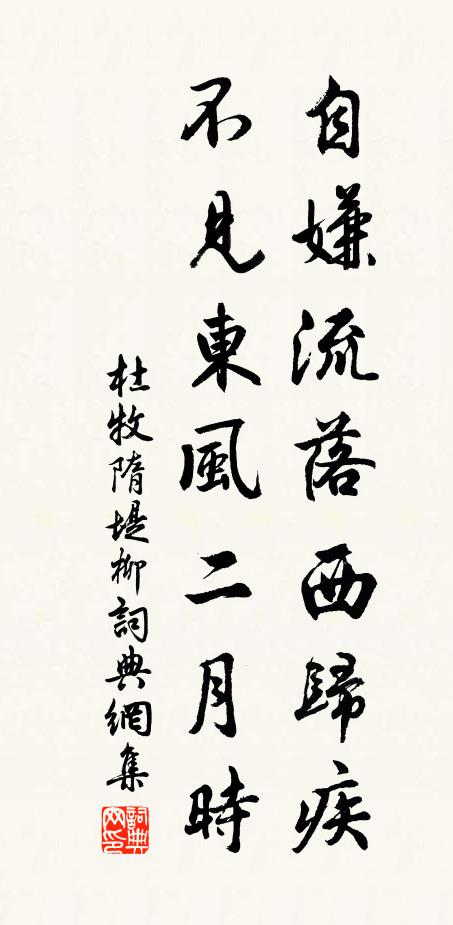 自嫌流落西歸疾
不見東風二月時
杜牧隋堤柳詞典網集
詞典網印